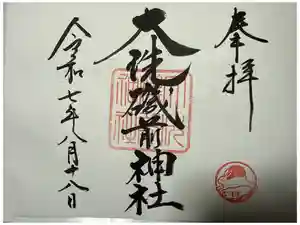 奉拝
大洗磯前神社
令和七年八月十八日